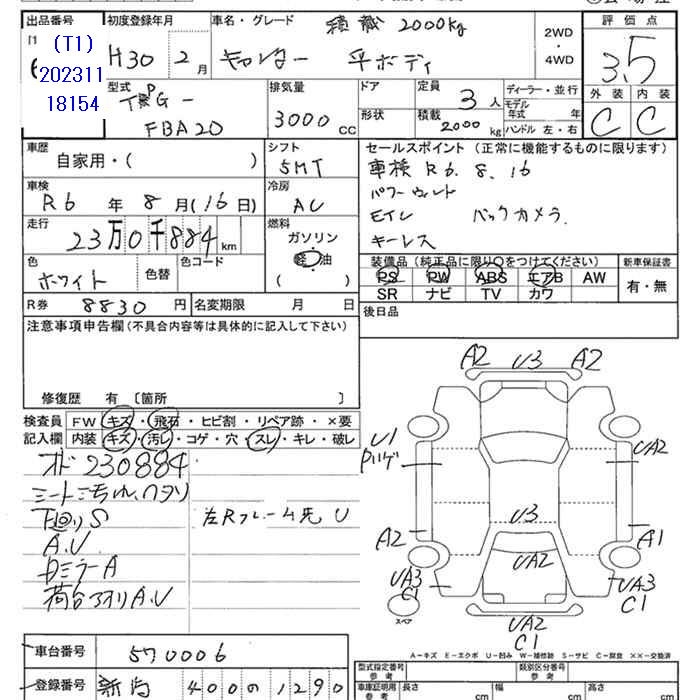 出品番号 初度登録年月 車名・グレード 積載 2000kg 評価点
(T1)
202311
18154
H30 2月 キャンター 平ボディ 2WD・4WD 3.5
型式 TPG- FBA20 排気量 3000cc ドア 形状 定員 3人 積載 2000kg
ディーラー・並行 モデル年式 年 ハンドル 左・右
外装 C 内装 C
車歴 自家用・( ) シフト 5MT
セールスポイント (正常に機能するものに限ります)
車検 R6年 8月(16日) 冷房 AC
車検 R6.8.16
パワーウィンド
ETC バックカメラ.
キーレス
走行 23万0千884km 燃料 ガソリン 軽油 ( )
色 ホワイト 色替 色コード
装備品 (純正品に限り○をつけてください) 新車保証書
PS PW ABS エアB AW 有・無
SR ナビ TV カワ
R券 8830円 名変期限 月 日
後日品
注意事項申告欄 (不具合内容等は具体的に記入して下さい)
修復歴 有 〔箇所 〕
検査員 FW キズ・飛石・ヒビ割・リペア跡・×要
記入欄 内装 キズ・汚レ・コゲ・穴・スレ・キレ・破レ
オド 230884
下回りS 左Rフレーム先 U
A.U
ミラーA
荷台アオリA.U
A2 U3 A2
U1
UA2
U3
A2 A1
UA2
UA3 C1
UA3 C1
スペア
UA2 C1
A-キズ E-エクボ U-凹み W-補修跡 S-サビ C-腐食 XX-交換済
車台番号 570006
型式指定番号 参考 類別区分番号 参考
登録番号 400 1290
車庫証明用 参考 長さ cm 幅 cm 高さ cm